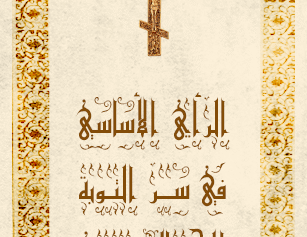 الرأي الأساسي
في سر التوبة